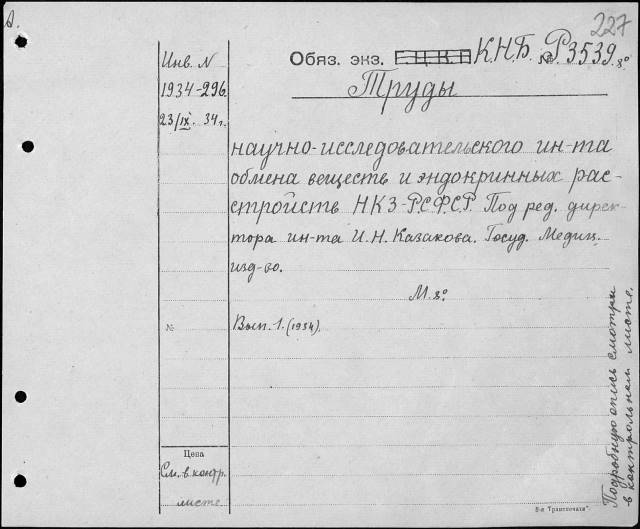 А.
227
Инв. N
1934-296
23/IX 34 г.
Обяз. экз. Г.Ц.К.П К.Н.Б. № Р3539 8º
Труды
научно-исследовательского ин-та
обмена веществ и эндокринных рас-
стройств НКЗ-Р.С.Ф.С.Р. Под ред. дирек-
тора ин-та И.Н. Казакова. Госуд. Медиц.
изд-во.
М. 8º
№
Вып. 1. (1934).
Цена
См. в контр.
листе
Подробную опись смотри
в контрольном листе.
5-я „Транспечати".